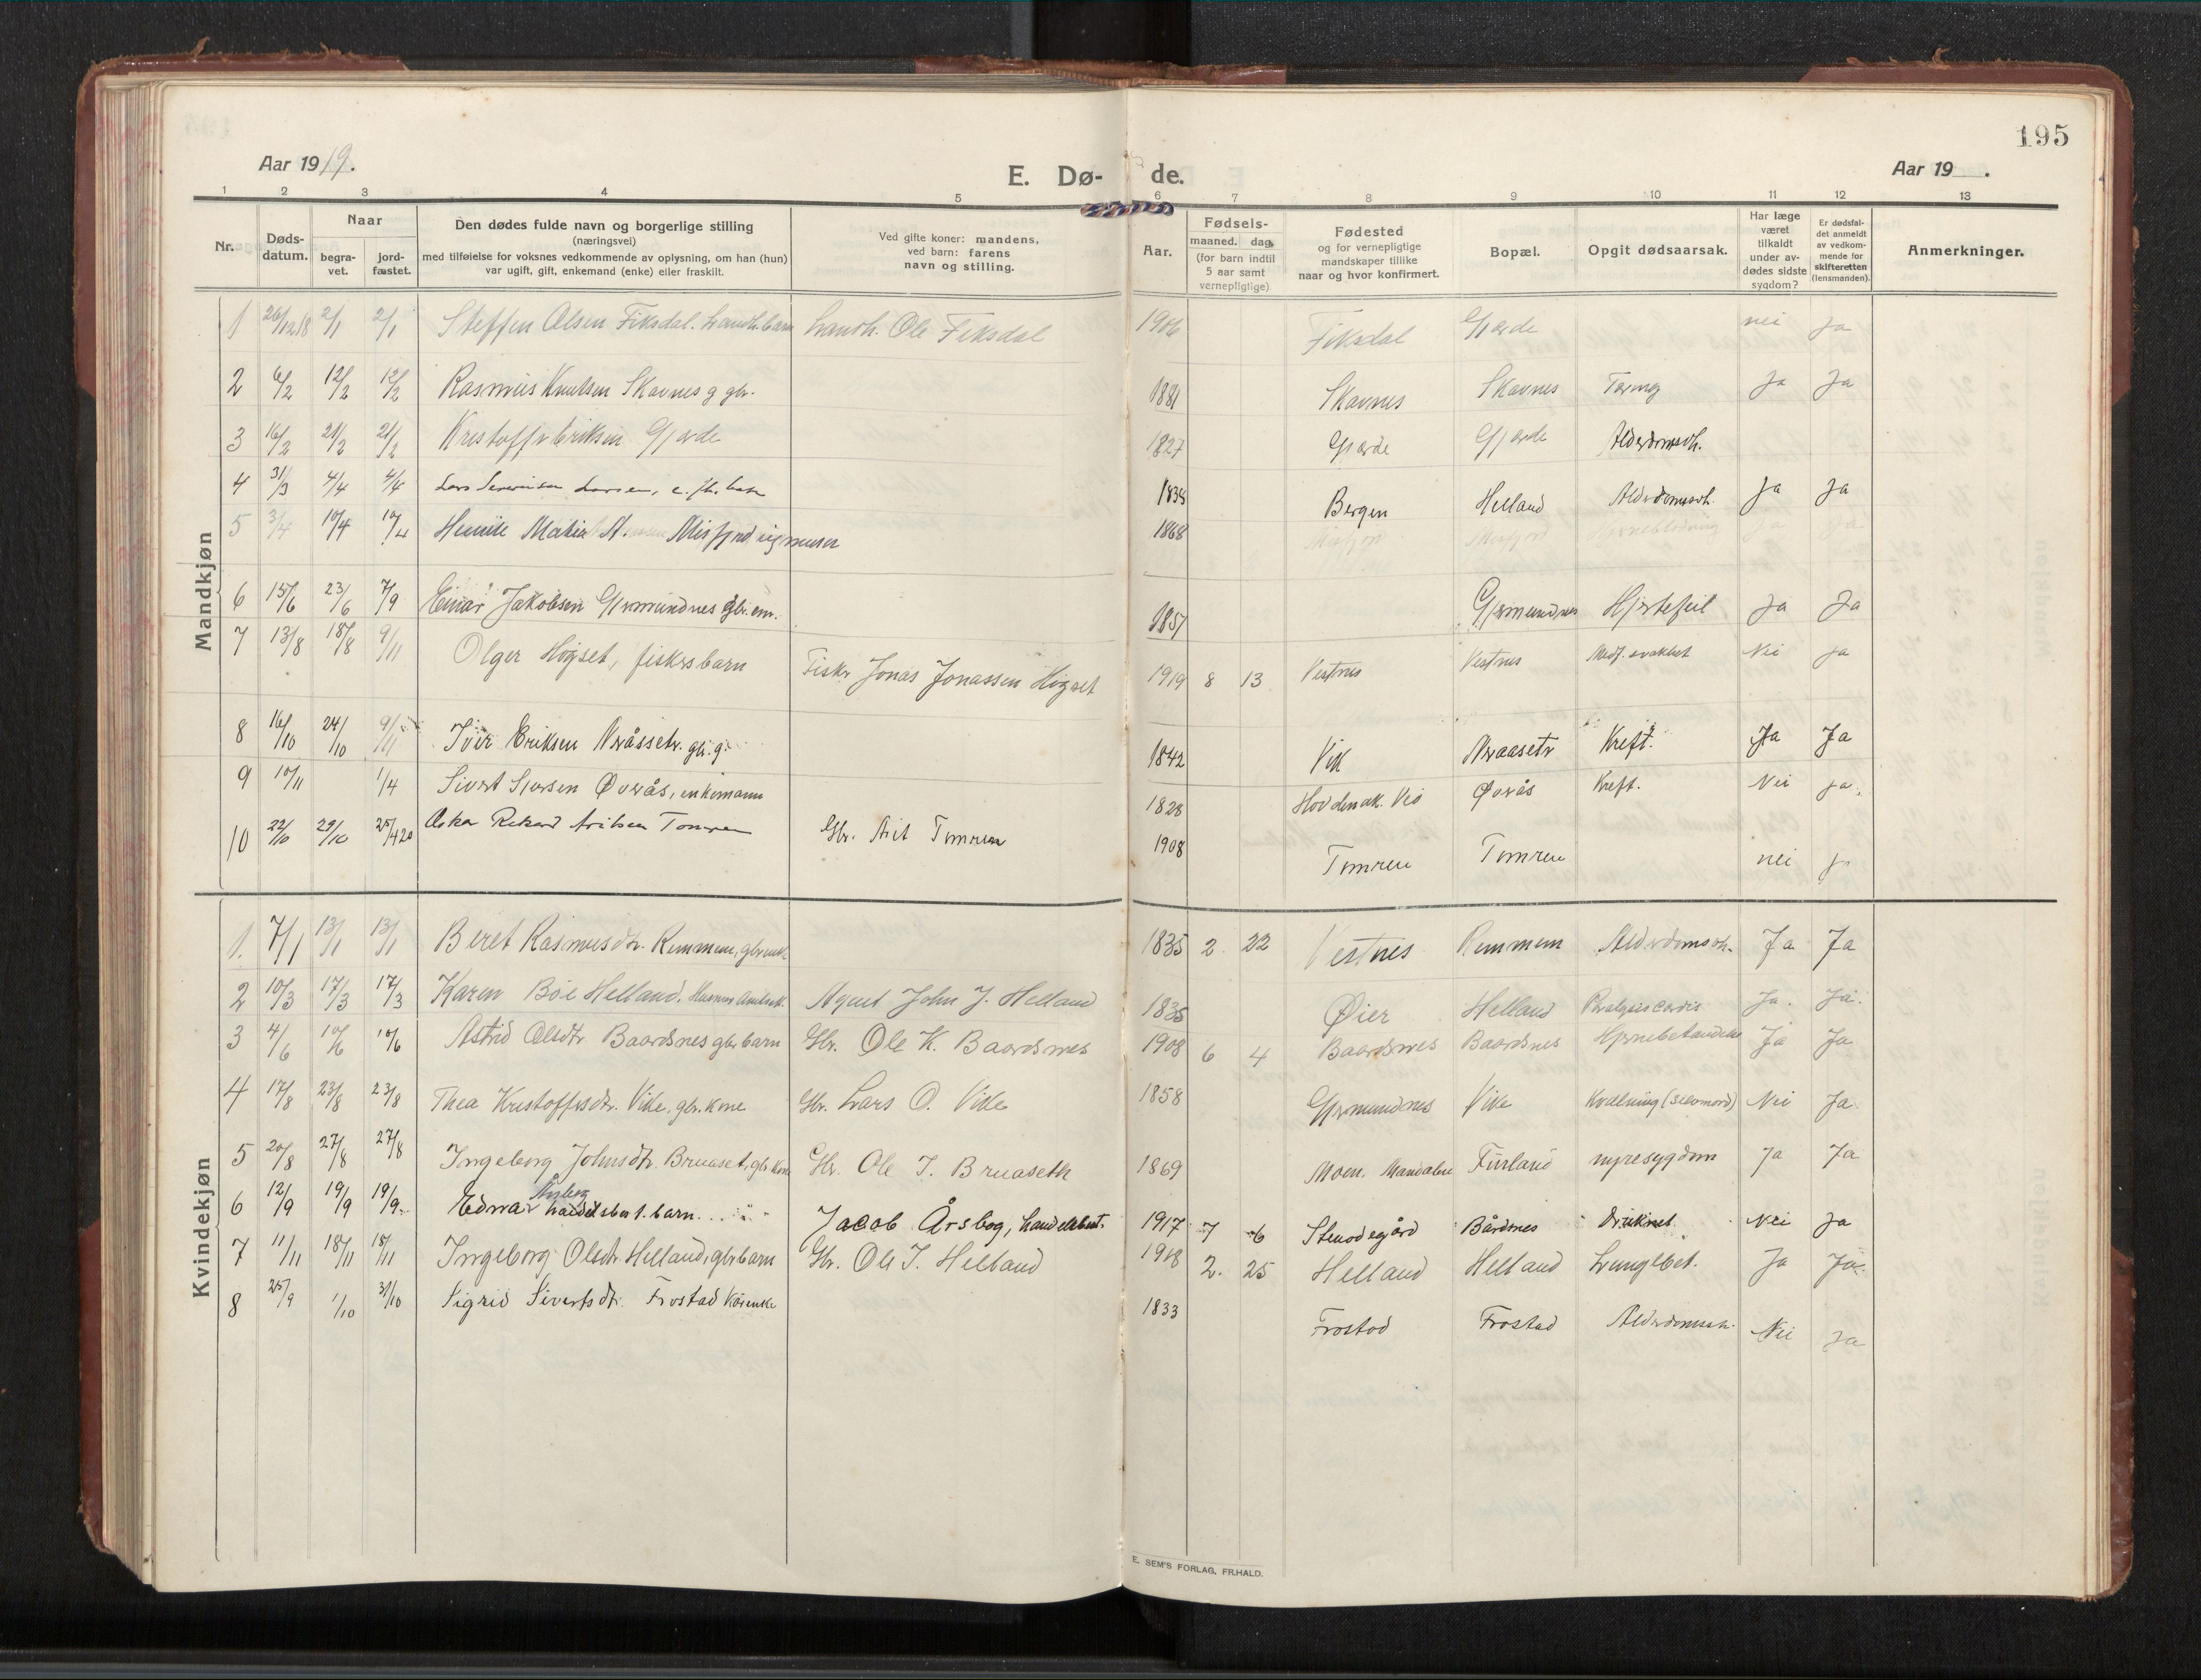 195
Aar 1919.
E. Dø- de.
Aar 19 .
1 2 3 4 5 6 7 8 9 10 11 12 13
Nr.
Døds-
datum.
Naar
begra-
vet.
jord-
fæstet.
Den dødes fulde navn og borgerlige stilling
(næringsvei)
med tilføielse for voksnes vedkommende av oplysning, om han (hun)
var ugift, gift, enkemand (enke) eller fraskilt.
Ved gifte koner: mandens,
ved barn: farens
navn og stilling.
Aar.
Fødsels-
maaned. dag.
(for barn indtil
5 aar samt
vernepligtige)
Fødested
og for vernepligtige
mandskaper tillike
naar og hvor konfirmert.
Bopæl.
Opgit dødsaarsak.
Har læge
været
tilkaldt
under av-
dødes sidste
sygdom?
Er dødsfal-
det anmeldt
av vedkom-
mende for
skifteretten
(lensmanden).
Anmerkninger.
Mandkjøn
1 26/12 18 2/1 2/1 Steffen Olsen Fiksdal. Landh. barn Landh. Ole Fiksdal 1916 Fiksdal Gjærde nei ja
2 6/2 12/2 12/2 Rasmus Knutsen Skavnes g gbr. 1881 Skavnes Skavnes Tæring Ja Ja
3 16/2 21/2 21/2 Kristoffer Eriksen Gjærde 1827 Gjærde Gjærde Alderdomssvh.
4 31/3 4/4 4/4 Lars Severinsen Larsen, 1838 Bergen Helland Alderdomssvh. Ja Ja
5 3/4 10/4 10/4 Misfjord 1868 Misfjord Misfjord Hjerneblødning Ja Ja
6 15/6 23/6 7/9 Einar Jakobsen Gjermundnes gbr. em. 1857 Gjermundnes Hjertefeil Ja Ja
7 13/8 18/8 9/11 Olger Høgset, fiskersbarn Fisker Jonas Jonassen Høgset 1919 8 13 Vestnes Vestnes Medf. svakhet Nei ja
8 16/10 24/10 9/11 Iver Eriksen Vraasetr. gbr. g. 1842 Vik Vraasetr Kreft. Ja Ja
9 10/11 1/4 Sivert Sjursen Øverås, enkemann 1828 Hovdenak. Veø Øverås Kreft. Nei ja.
10 22/10 29/10 25/4 20 Rikard Tomren Gbr. Arit Tomren 1908 Tomren Tomren nei ja
Kvindekjøn
1. 7/1 13/1 13/1 Beret Rasmusdtr. Remmem, gbr enke 1835 2. 22 Vestnes Remmem Alderdomssvh. Ja Ja
2 10/3 17/3 17/3 Karen Bøe Helland. Agent John J. Helland 1835 Øier Helland Paralysis cordis Ja. Ja.
3 4/6 10/6 10/6 Astrid Olsdtr Baardsnes gbr barn Gbr. Ole K. Baardsnes 1908 6 4 Baardsnes Baardsnes Hjernebetændelse Ja Ja
4 17/8 23/8 23/8 Thea Kristoffersdtr. Vike, gbr. kone Gbr. Lars O. Vike 1858 Gjermundnes Vike Kvælning (selvmord) Nei Ja.
5 20/8 27/8 27/8 Ingeborg Johnsdtr. Bruaset, gbr kone Gbr. Ole T. Bruaseth 1869 Moen. Mandalen Furland nyresygdom Ja Ja
6 12/9 19/9 19/9 Edna Årsbog handelsbest. barn. Jacob Årsbog, handelsbest. 1917 7 6 Stenødegård Bårdsnes Druknet Nei Ja
7 11/11 18/11 18/11 Ingeborg Olsdtr. Helland, gbr barn Gbr. Ole J. Helland 1918 2. 25 Helland Helland Lungebet. Ja Ja
8 25/9 1/10 31/10 Sigrid Sivertsdtr. Frostad kårenke 1833 Frostad Frostad Alderdomssvh. Nei Ja
E. SEM'S FORLAG, FR.HALD.